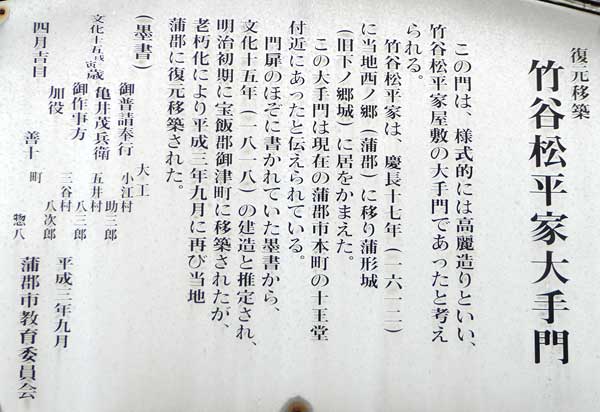 復元移築
竹谷松平家大手門
この門は、様式的には高麗造りといい、
竹谷松平家屋敷の大手門であったと考え
られる。
竹谷松平家は、慶長十七年(一六一二)
に当地西ノ郷(蒲郡)に移り蒲形城
(旧下ノ郷城)に居をかまえた。
この大手門は現在の蒲郡市本町の十王堂
付近にあったと伝えられている。
門扉のほぞに書かれていた墨書から、
文化十五年(一八一八)の建造と推定され、
明治初期に宝飯郡御津町に移築されたが、
老朽化により平成三年九月に再び当地
蒲郡に復元移築された。
(墨書)
大工
御普請奉行 小江村 助三郎
文化十五戊寅歳 亀井茂兵衛 五井村 八三郎
御作事方 三谷村 八次郎
四月吉日 加役 善十 町 惣八
平成三年九月
蒲郡市教育委員会